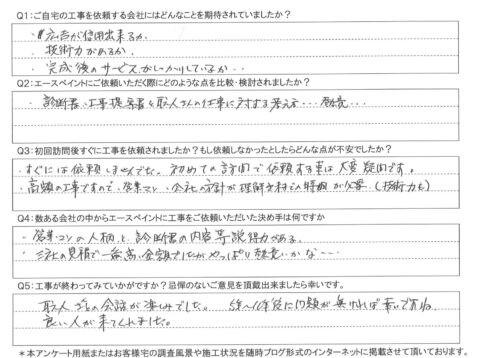 Q1：ご自宅の工事を依頼する会社にはどんなことを期待されていましたか？
・広告が信用出来るか、
・技術力があるか、
・完成後のサービスがしっかりしているか・・
Q2：エースペイントにご依頼いただく際にどのような点を比較・検討されましたか？
・診断書、工事提案書、職人さんの仕事に対する考え方・・・熱意・・・
Q3：初回訪問後すぐに工事を依頼されましたか？もし依頼しなかったとしたらどんな点が不安でしたか？
・すぐには依頼しませんでした。初めての訪問で依頼する事は大変疑問です。
・高額の工事ですので、営業マン、会社の方針が理解出来る時間が必要。（技術力も）
Q4：数ある会社の中からエースペイントに工事をご依頼いただいた決め手は何ですか
・営業マンの人柄と、診断書の内容等説得力がある。
・三社の見積で一番高い金額でしたがやっぱり熱意かな・・・
Q5：工事が終わってみていかがですか？忌憚のないご意見を頂戴出来ましたら幸いです。
職人さんとの会話が楽しみでした。5年〜10年後に問題が無ければ幸いですね
良い人が来てくれました。
＊本アンケート用紙またはお客様宅の調査風景や施工状況を随時ブログ形式のインターネットに掲載させて頂いております。